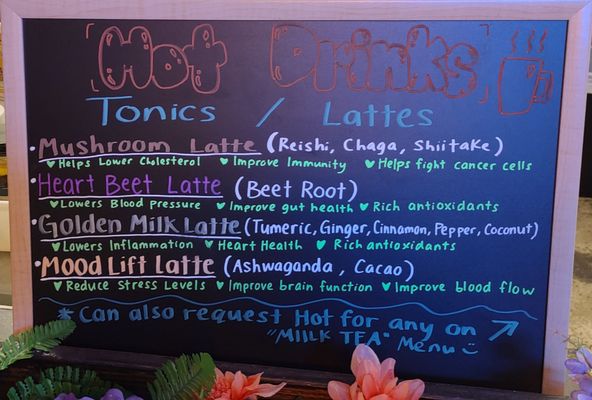 Hot Drinks
Tonics / Lattes
• Mushroom Latte (Reishi, Chaga, Shiitake)
♥ Helps Lower Cholesterol ♥ Improve Immunity ♥ Helps fight cancer cells
• Heart Beet Latte (Beet Root)
♥ Lowers Blood Pressure ♥ Improve gut health ♥ Rich antioxidants
• Golden Milk Latte (Tumeric, Ginger, Cinnamon, Pepper, Coconut)
♥ Lowers Inflammation ♥ Heart Health ♥ Rich antioxidants
• Mood Lift Latte (Ashwaganda, Cacao)
♥ Reduce Stress Levels ♥ Improve brain function ♥ Improve blood flow
* Can also request Hot for any on
"MIlLK TEA" Menu